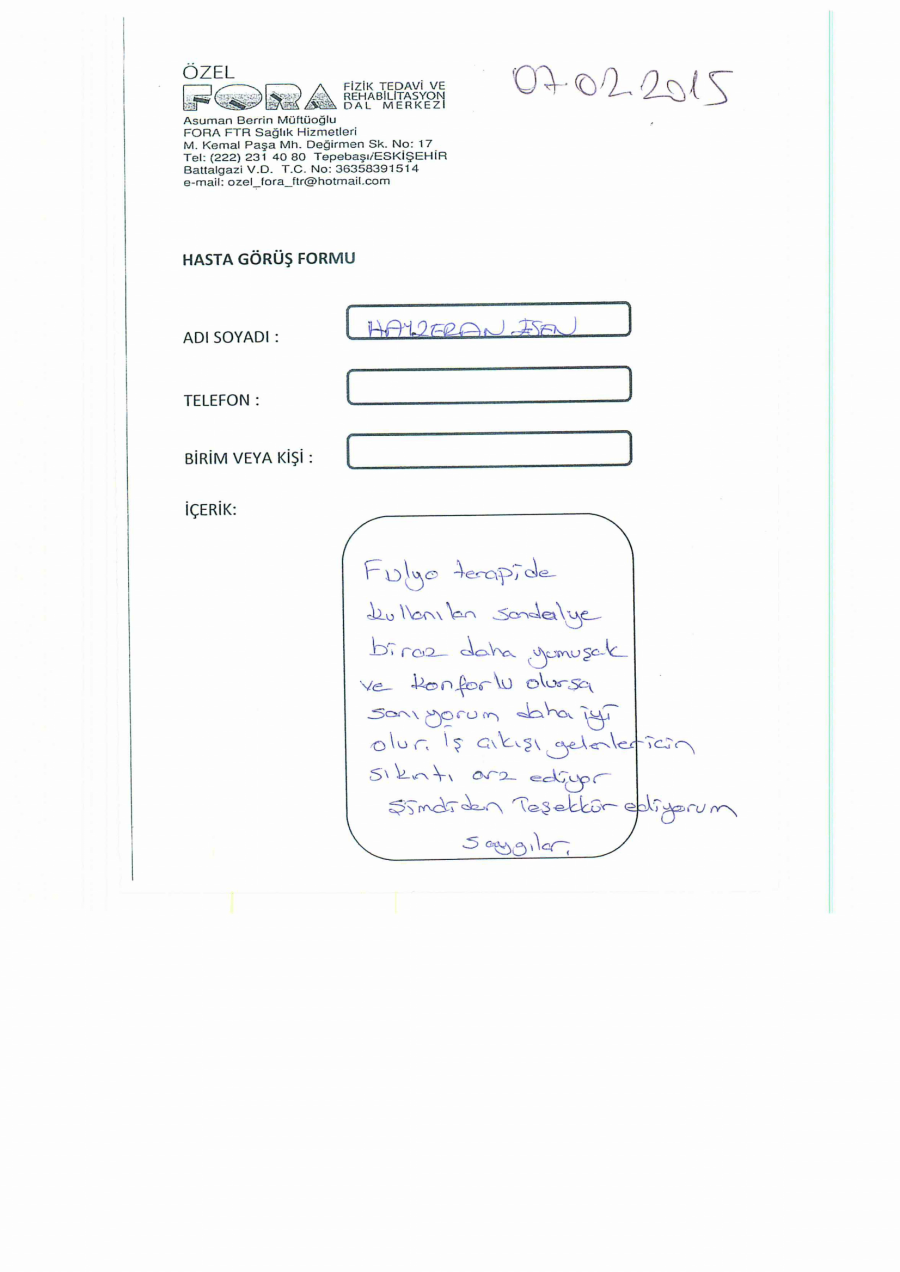 07.02.2015
ÖZEL
FORA FİZİK TEDAVİ VE
REHABİLİTASYON
DAL MERKEZİ
Asuman Berrin Müftüoğlu
FORA FTR Sağlık Hizmetleri
M. Kemal Paşa Mh. Değirmen Sk. No: 17
Tel: (222) 231 40 80 Tepebaşı/ESKİŞEHİR
Battalgazi V.D. T.C. No: 36358391514
e-mail: ozel_fora_ftr@hotmail.com
HASTA GÖRÜŞ FORMU
ADI SOYADI : HAYZERAN
TELEFON :
BİRİM VEYA KİŞİ :
İÇERİK:
Fulyo terapide
kullanılan sandalye
biraz daha yumuşak
ve konforlu olursa
sanıyorum daha iyi
olur. İş çıkışı gelenler için
sıkıntı arz ediyor
Şimdiden Teşekkür ediyorum
Saygılar.